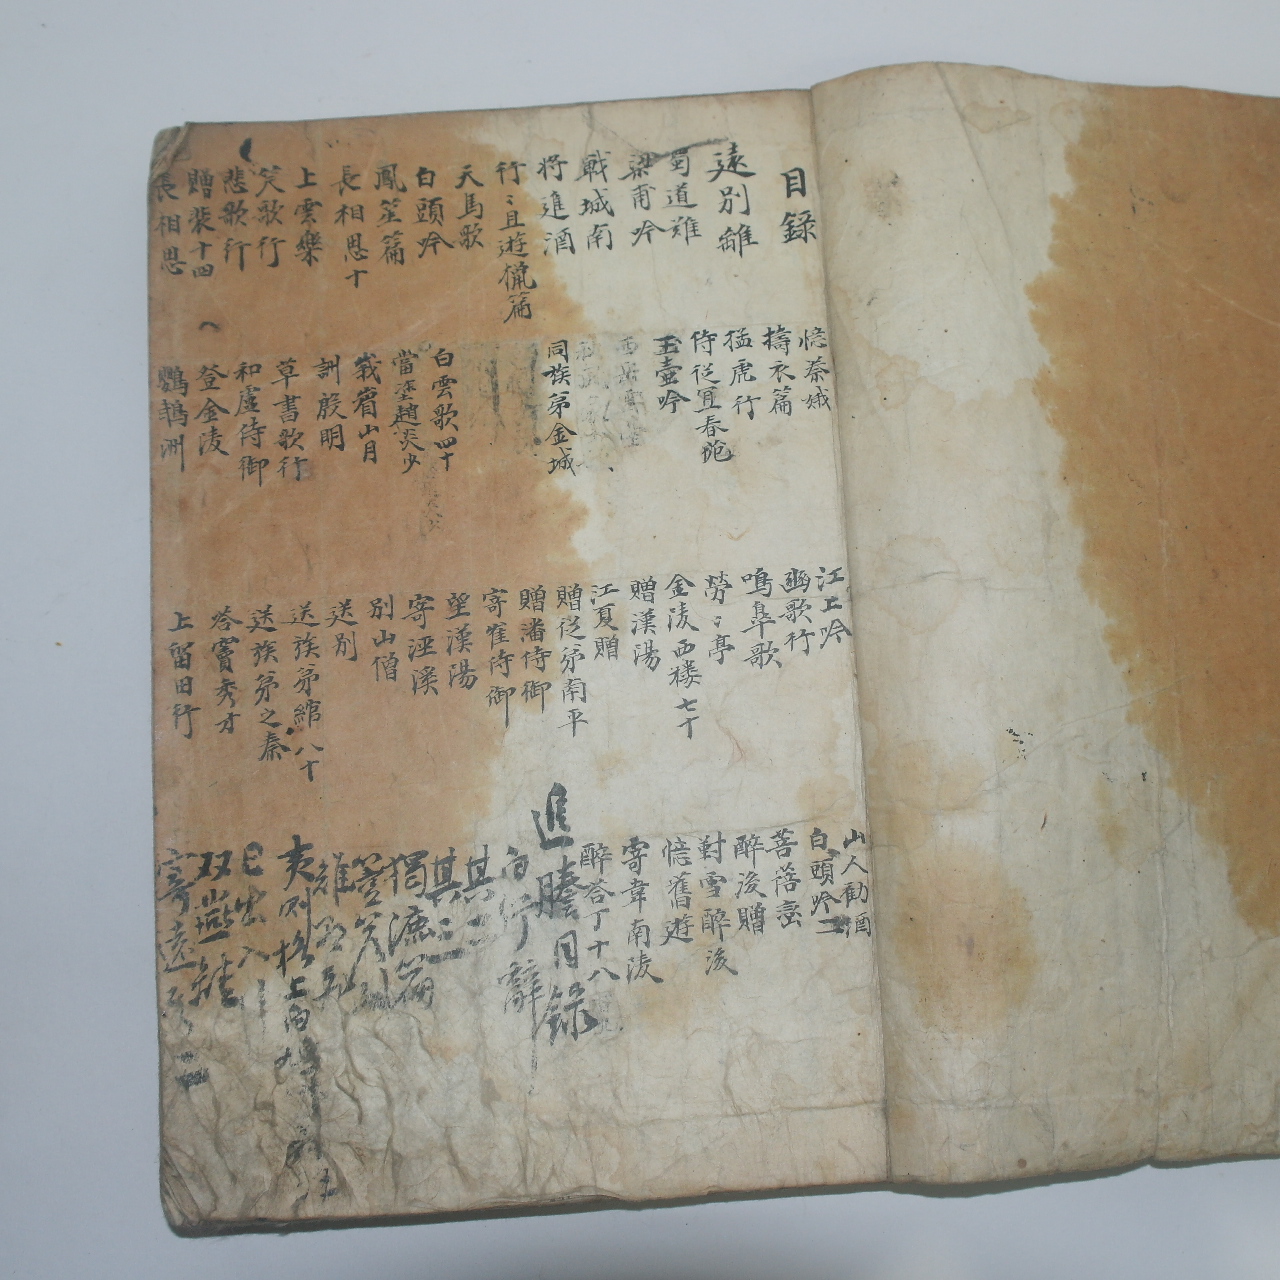 目錄
遠別離
蜀道難
梁甫吟
戰城南
將進酒
行〻且遊獵篇
天馬歌
白頭吟
鳳笙篇
長相思十
上雲樂
笑歌行
悲歌行
贈裴十四
長相思
憶秦娥
擣衣篇
猛虎行
侍從宜春苑
玉壺吟
同族弟金城
白雲歌四十
當塗趙炎少
峩眉山月
訓殷明
草書歌行
和盧侍御
登金陵
鸚鵡洲
江上吟
幽歌行
鳴皐歌
勞〻亭
金陵西楼七十
贈漢陽
江夏贈
贈從弟南平
贈潘侍御
寄崔侍御
望漢陽
寄涇溪
別山僧
送別
送族弟綰八十
送族弟之秦
答竇秀才
上留田行
山人勸酒
白頭吟二
菩薩蠻
醉後贈
對雪醉後
憶舊遊
寄韋南陵
醉答丁十八
進謄目錄
行辭
其二
其三
獨漉篇
日出入
双燕離
寄遠